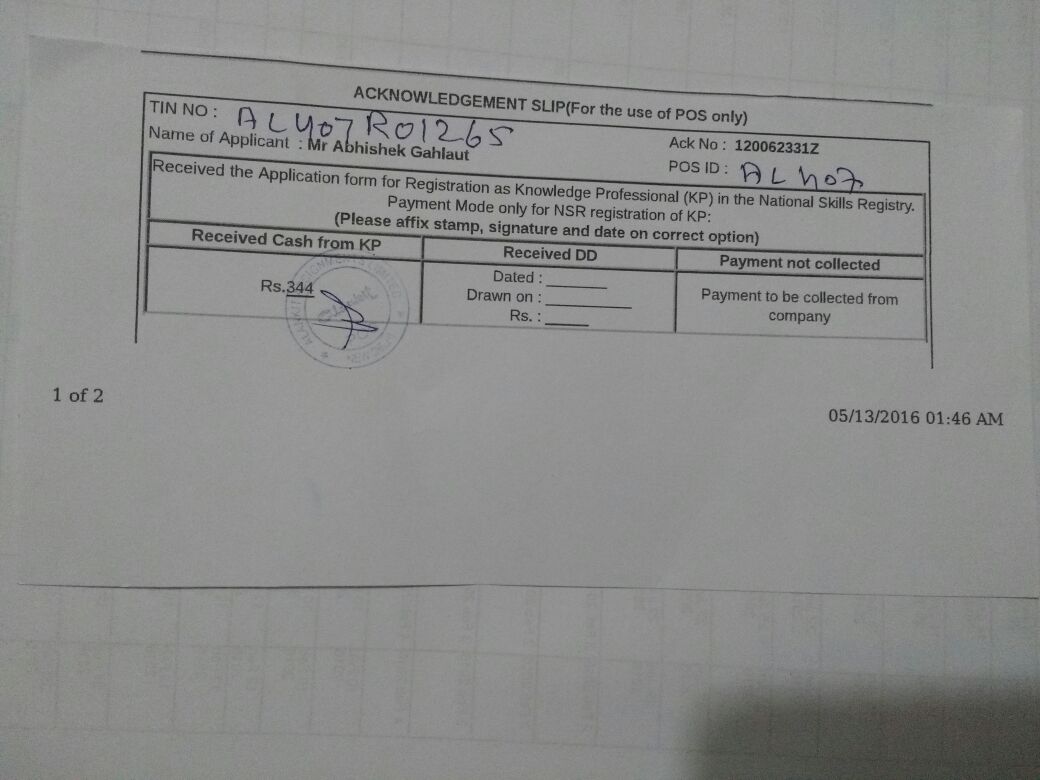 ACKNOWLEDGEMENT SLIP(For the use of POS only)
TIN NO : AL407R01265
Ack No : 120062331Z
Name of Applicant : Mr Abhishek Gahlaut
POS ID : AL407
Received the Application form for Registration as Knowledge Professional (KP) in the National Skills Registry.
Payment Mode only for NSR registration of KP:
(Please affix stamp, signature and date on correct option)
Received Cash from KP
Received DD
Payment not collected
Rs.344
Dated : ______
Drawn on : ________
Rs. : ____
Payment to be collected from
company
ALANKIT ASSIGNMENTS LIMITED
1 of 2
05/13/2016 01:46 AM